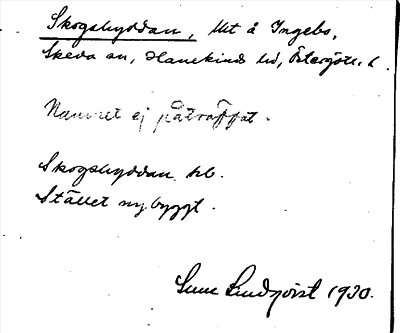 Skogshyddan, Utt å Ingebo,
Skeda sn, Hanekinds hd, Östergötl. l.
Namnet ej påträffat.
Skogshyddan hb.
Stället nybyggt.
Sune Lindqvist 1930.